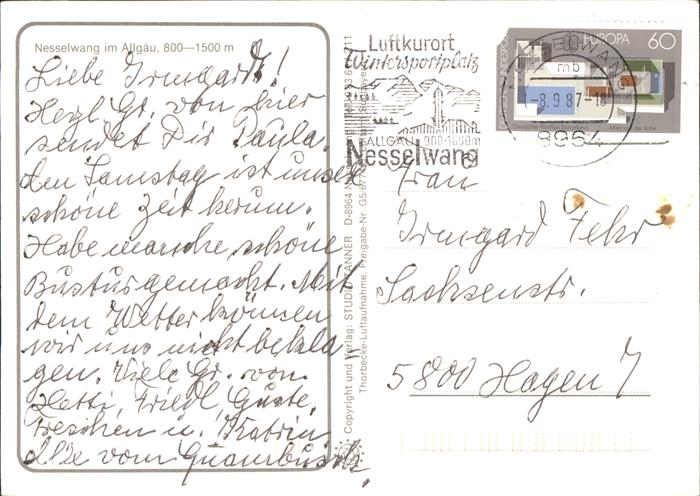 Nesselwang im Allgäu, 800—1500 m
Liebe Irmgard!
Herzl. Gr. von hier
sendet Dir Paula.
Am Samstag ist unsere
schöne Zeit herum.
Habe manche schöne
Bustur gemacht. Mit
dem Wetter können
wir uns nicht bekla
gen. Viele Gr. von
Hetti, Friedl, Guste,
u. Katrin
Alle vom
Copyright und Verlag: STUDIO TANNER D-8964
Thorbecke-Luftaufnahme, Freigabe-Nr.
Luftkurort
Wintersportplatz
ALLGÄU 900-1600m
Nesselwang
DEUTSCHE BUNDESPOST
EUROPA 60
NESSELWANG
mb
-8.9.87-18
8964
Frau
Irmgard Fehr
Sachsenstr.
5800 Hagen 7